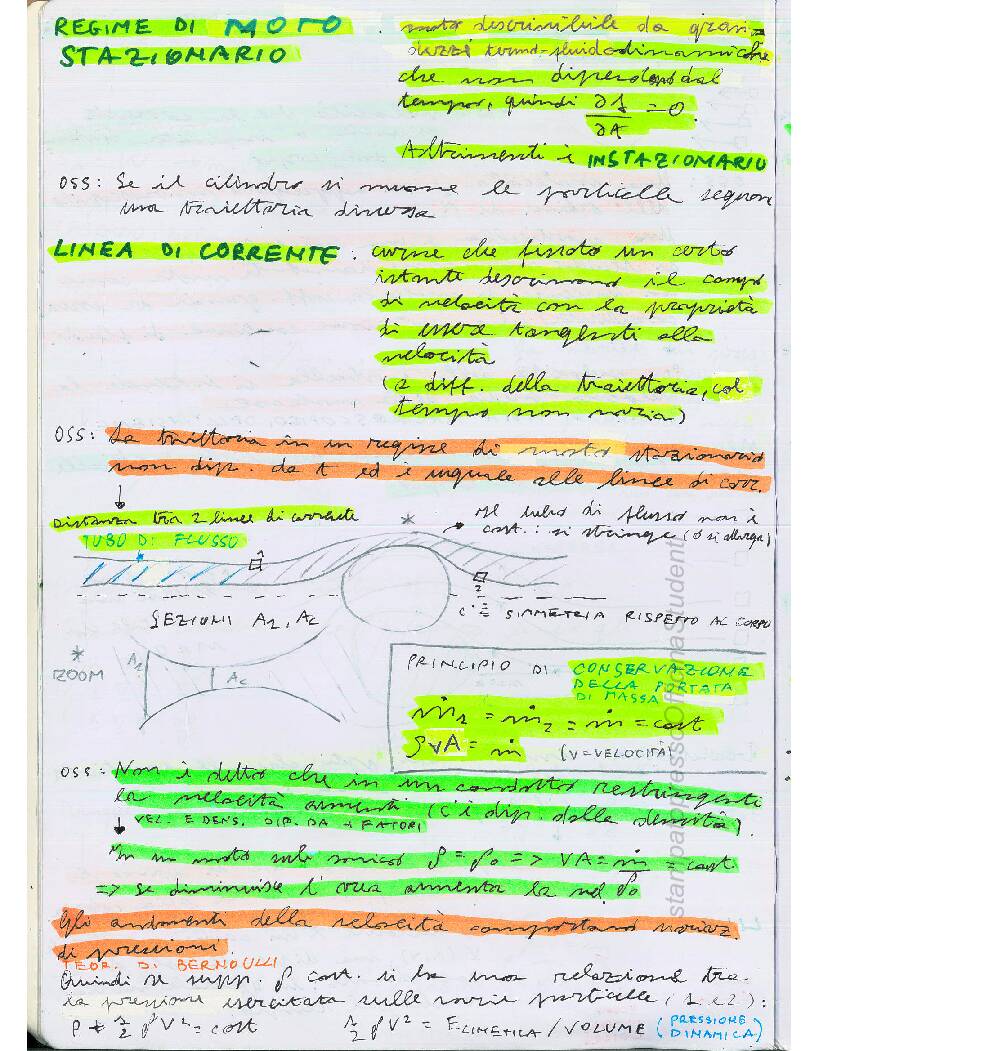 REGIME DI MOTO STAZIONARIO . moto descrivibile da gran=
dezze termo-fluidodinamiche
che non dipendono dal
tempo, quindi ∂f/∂t = 0
Altrimenti è INSTAZIONARIO
OSS: Se il cilindro si muove le particelle seguono
una traiettoria diversa
LINEA DI CORRENTE . curve che fissato un certo
istante descrivono il campo
di velocità con la proprietà
di essere tangenti alla
velocità
(a diff. della traiettoria, col
tempo non varia)
OSS: La traiettoria in un regime di moto stazionario
non dip. da t ed è uguale alle linee di corr.
Distanza tra 2 linee di corrente
TUBO DI FLUSSO
* → Il tubo di flusso non è
cost.: si stringe (o si allarga)
1
2
c'è SIMMETRIA RISPETTO AL CORPO
SEZIONI A1, Ac
* ZOOM
A1
Ac
PRINCIPIO DI CONSERVAZIONE
DELLA PORTATA
DI MASSA
ṁ1 = ṁ2 = ṁ = cost
ρVA = ṁ (V=VELOCITÀ)
OSS: Non è detto che in un condotto restringenti
la velocità aumenti (c'è dip. dalla densità)
VEL. E DENS. DIP. DA + FATORI
In un moto sub sonico ρ = ρ0 => VA = ṁ/ρ0 = cost.
=> se diminuisce l'area aumenta la vel.
Gli andamenti della velocità comportano variaz.
di pressioni.
TEOR. DI BERNOULLI
Quindi se supp. ρ cost. si ha una relazione tra
la pressione esercitata sulle varie particelle (1 e 2):
P + 1/2 ρV² = cost 1/2 ρV² = E CINETICA / VOLUME (PRESSIONE
DINAMICA)